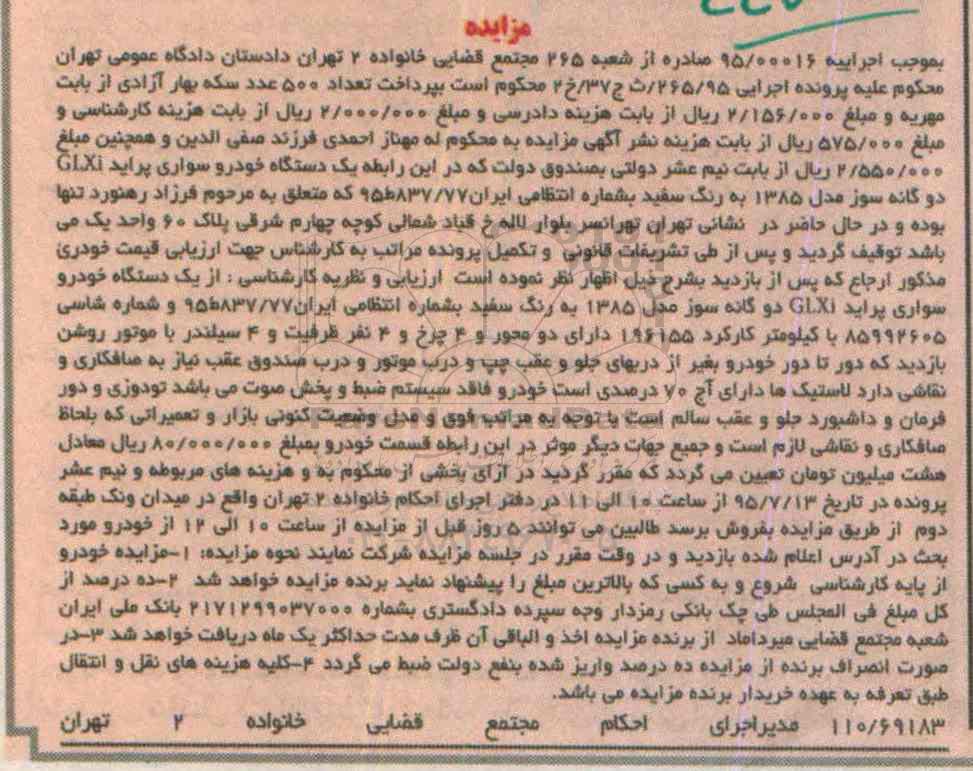 مزایده
بموجب اجراییه ۹۵/۰۰۰۱۶ صادره از شعبه ۲۶۵ مجتمع قضایی خانواده ۲ تهران دادستان دادگاه عمومی تهران
محکوم علیه پرونده اجرایی ۲۶۵/۹۵/ث ج/۳۷/خ۲ محکوم است بپرداخت تعداد ۵۰۰ عدد سکه بهار آزادی از بابت
مهریه و مبلغ ۲/۱۵۶/۰۰۰ ریال از بابت هزینه دادرسی و مبلغ ۲/۰۰۰/۰۰۰ ریال از بابت هزینه کارشناسی و
مبلغ ۵۷۵/۰۰۰ ریال از بابت هزینه نشر آگهی مزایده به محکوم له مهناز احمدی فرزند صفی الدین و همچنین مبلغ
۲/۵۵۰/۰۰۰ ریال از بابت نیم عشر دولتی بصندوق دولت که در این رابطه یک دستگاه خودرو سواری پراید GLXi
دو گانه سوز مدل ۱۳۸۵ به رنگ سفید بشماره انتظامی ایران۸۳۷/۷۷ط۹۵ که متعلق به مرحوم فرزاد رهنورد تنها
بوده و در حال حاضر در نشانی تهران تهرانسر بلوار لاله خ قباد شمالی کوچه چهارم شرقی پلاک ۶۰ واحد یک می
باشد توقیف گردید و پس از طی تشریفات قانونی و تکمیل پرونده مراتب به کارشناس جهت ارزیابی قیمت خودری
مذکور ارجاع که پس از بازدید بشرح ذیل اظهار نظر نموده است ارزیابی و نظریه کارشناسی : از یک دستگاه خودرو
سواری پراید GLXi دو گانه سوز مدل ۱۳۸۵ به رنگ سفید بشماره انتظامی ایران۸۳۷/۷۷ط۹۵ و شماره شاسی
۸۵۹۹۲۶۰۵ با کیلومتر کارکرد ۱۹۶۱۵۵ دارای دو محور و ۴ چرخ و ۴ نفر ظرفیت و ۴ سیلندر با موتور روشن
بازدید که دور تا دور خودرو بغیر از دربهای جلو و عقب چپ و درب موتور و درب صندوق عقب نیاز به صافکاری و
نقاشی دارد لاستیک ها دارای آج ۷۰ درصدی است خودرو فاقد سیستم ضبط و پخش صوت می باشد تودوزی و دور
فرمان و داشبورد جلو و عقب سالم است با توجه به مراتب فوق و مدل وضعیت کنونی بازار و تعمیراتی که بلحاظ
صافکاری و نقاشی لازم است و جمیع جهات دیگر موثر در این رابطه قسمت خودرو بمبلغ ۸۰/۰۰۰/۰۰۰ ریال معادل
هشت میلیون تومان تعیین می گردد که مقرر گردید در ازای بخشی از محکوم به و هزینه های مربوطه و نیم عشر
پرونده در تاریخ ۹۵/۷/۱۳ از ساعت ۱۰ الی ۱۱ در دفتر اجرای احکام خانواده ۲ تهران واقع در میدان ونک طبقه
دوم از طریق مزایده بفروش برسد طالبین می توانند ۵ روز قبل از مزایده از ساعت ۱۰ الی ۱۲ از خودرو مورد
بحث در آدرس اعلام شده بازدید و در وقت مقرر در جلسه مزایده شرکت نمایند نحوه مزایده: ۱-مزایده خودرو
از پایه کارشناسی شروع و به کسی که بالاترین مبلغ را پیشنهاد نماید برنده مزایده خواهد شد ۲-ده درصد از
کل مبلغ فی المجلس طی چک بانکی رمزدار وجه سپرده دادگستری بشماره ۲۱۷۱۲۹۹۰۳۷۰۰۰ بانک ملی ایران
شعبه مجتمع قضایی میرداماد از برنده مزایده اخذ و الباقی آن ظرف مدت حداکثر یک ماه دریافت خواهد شد ۳-در
صورت انصراف برنده از مزایده ده درصد واریز شده بنفع دولت ضبط می گردد ۴-کلیه هزینه های نقل و انتقال
طبق تعرفه به عهده خریدار برنده مزایده می باشد.
۱۱۰/۶۹۱۸۳ مدیراجرای احکام مجتمع قضایی خانواده ۲ تهران